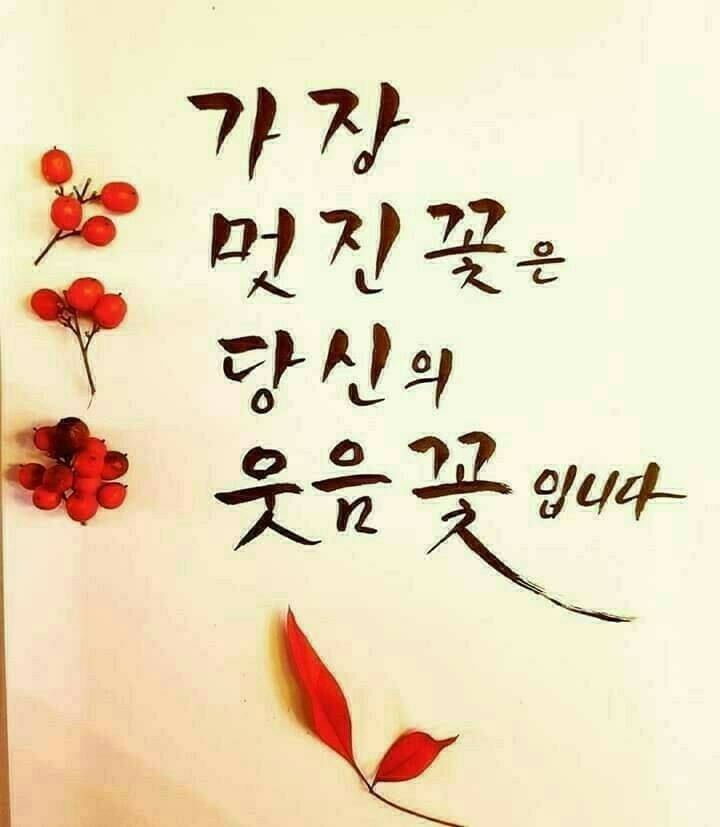 가장
멋진꽃은
당신의
웃음꽃입니다